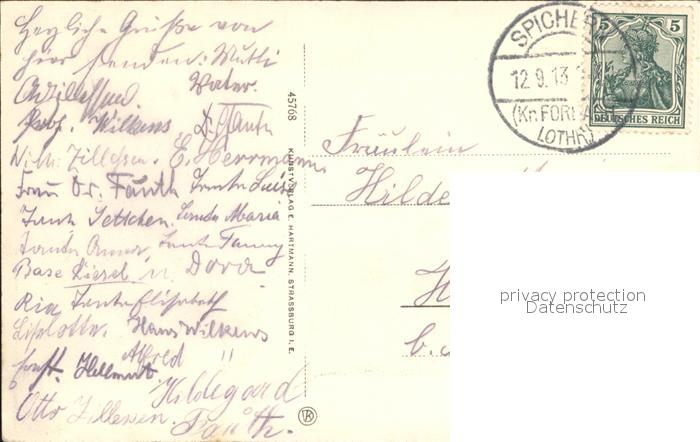 Herzliche Grüße von
hier senden: Mutti
Vater.
Prof. Wilkens. Dr. Fauth
Zillessen. E. Herrmann
Frau Dr. Fauth Tante Luise
Tante Jettchen. Tante Maria
Tante Anna, Tante Fanny
Base Liesel u. Dora
Ria, Tante Elisabeth
Liselotte. Hans Wilkens
Alfred "
Hellmut
Hildegard
Otto Zillessen. Fauth.
45708
KUNSTVERLAG E. HARTMANN, STRASSBURG I. E.
SPICHER
12.9.13
(Kr. FORBACH
LOTHR)
5 5
DEUTSCHES REICH
Fräulein
Hilde
H
b.
privacy protection
Datenschutz